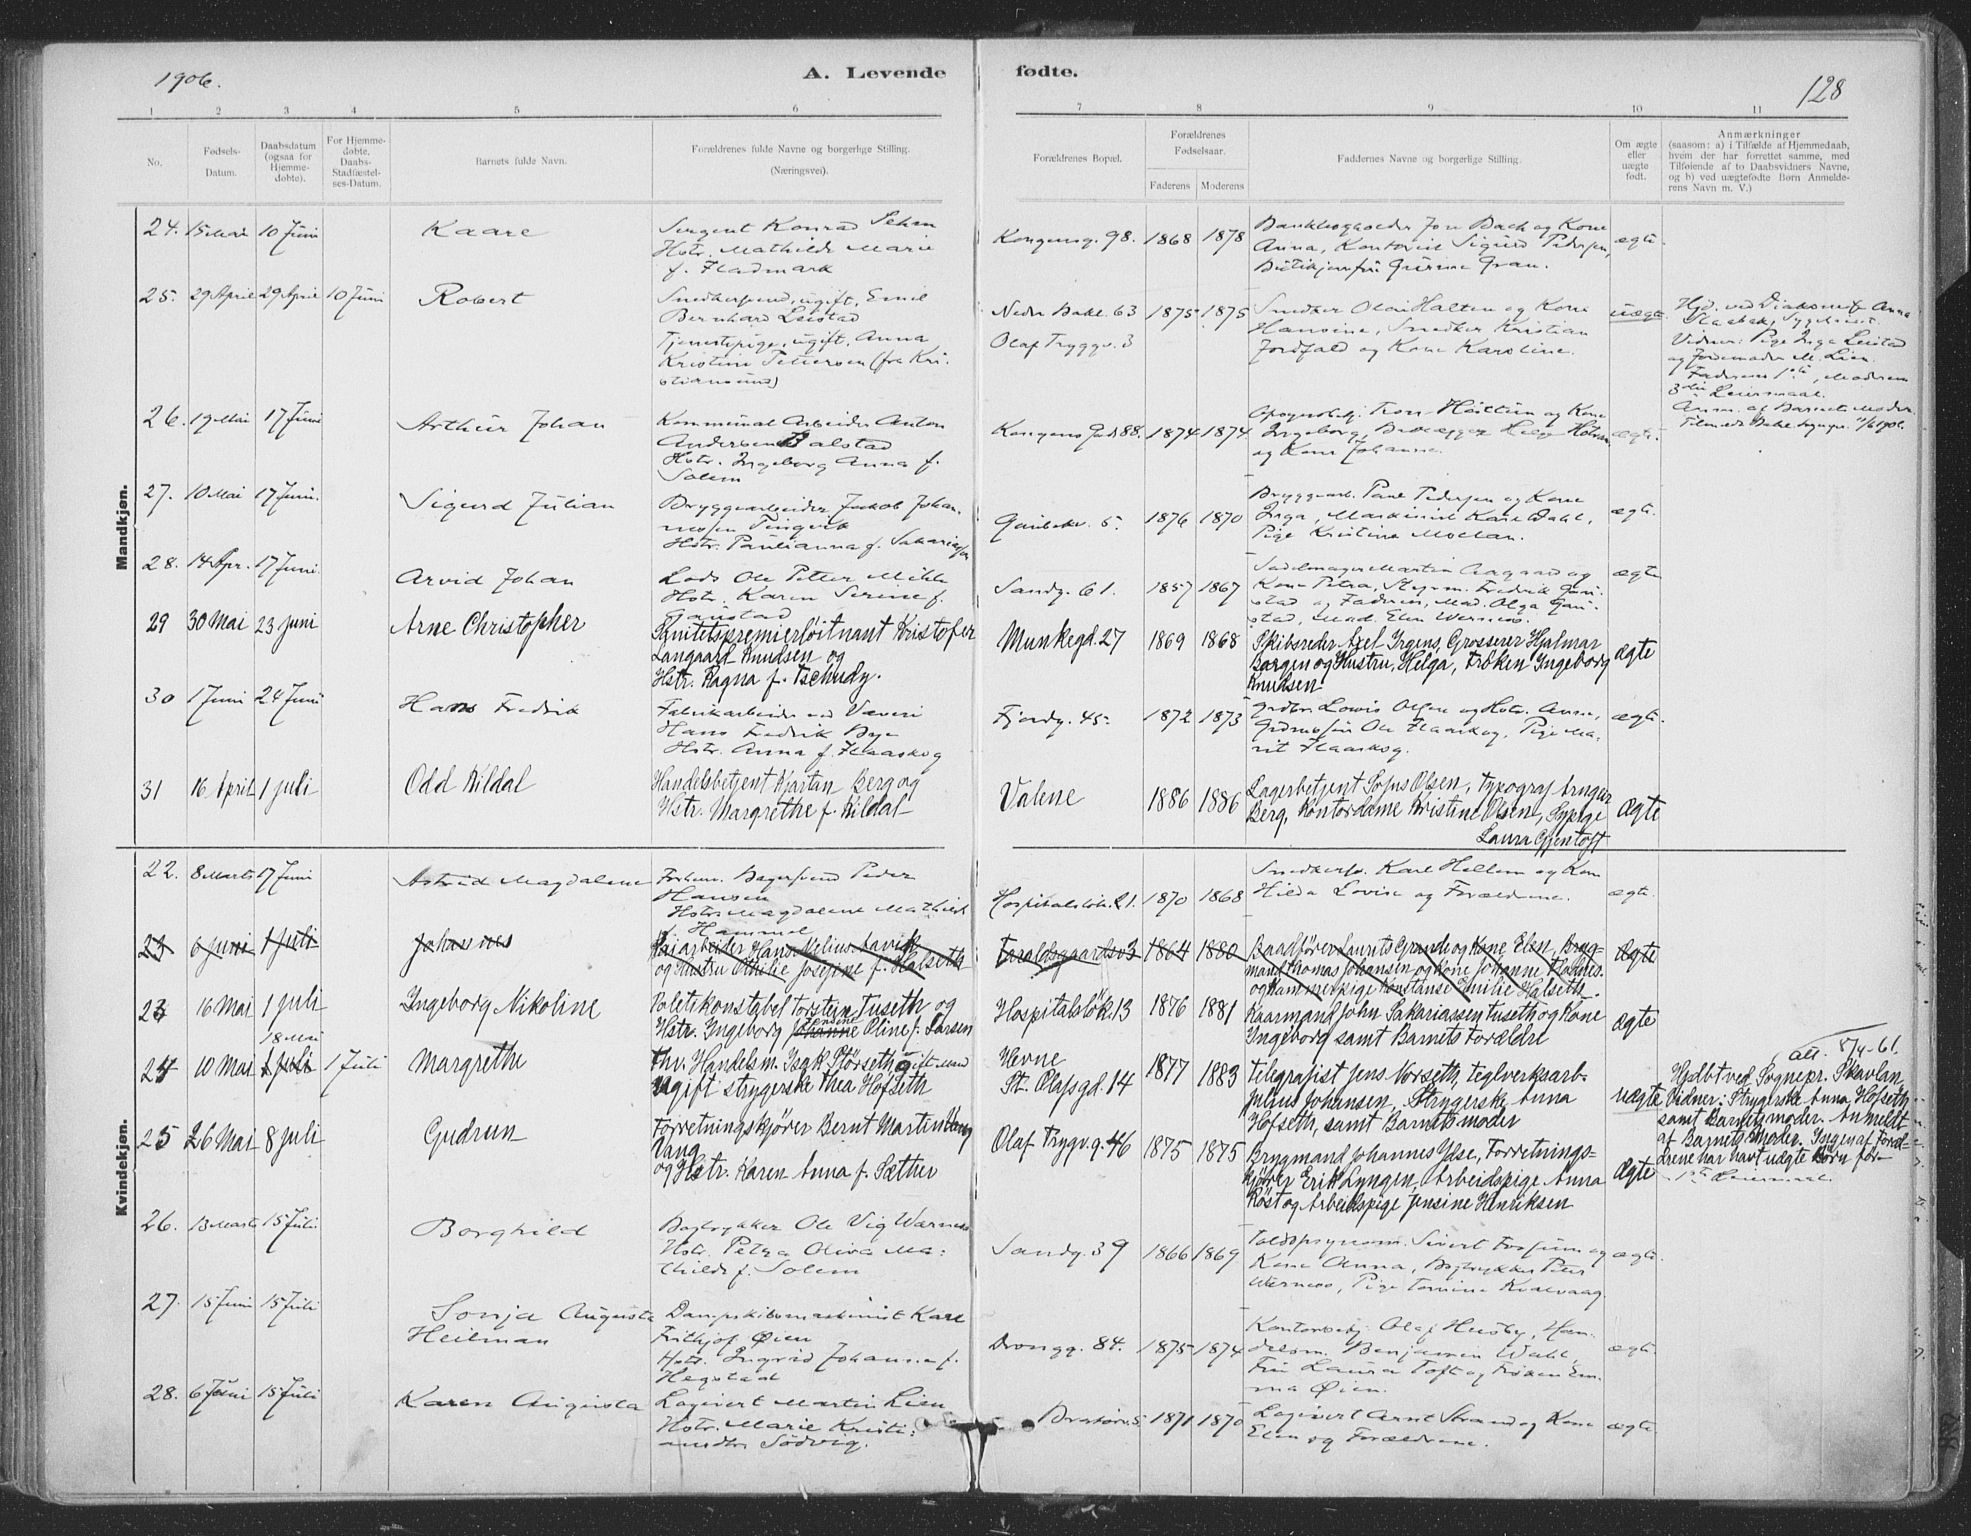 1906.
A. Levende fødte.
128
1 2 3 4 5 6 7 8 9 10 11
No.
Fødsels-
Datum.
Daabsdatum
(ogsaa for
Hjemme-
døbte).
For Hjemme-
døbte,
Daabs-
Stadfæstel-
ses-Datum.
Barnets fulde Navn.
Forældrenes fulde Navne og borgerlige Stilling.
(Næringsvei).
Forældrenes Bopæl.
Forældrenes
Fødselsaar.
Faderens Moderens
Faddernes Navne og borgerlige Stilling.
Om ægte
eller
uægte
født.
Anmærkninger
(saasom: a) i Tilfælde af Hjemmedaab,
hvem der har forrettet samme, med
Tilføiende af to Daabsvidners Navne,
og b) ved uægtefødte Børn Anmelde-
rens Navn m. V.)
Mandkjøn.
24. 15 Mai 10 Juni Kaare
Sergent Konrad
Hstr. Mathilde Marie
Kongensg. 98. 1868 1878
Anna, Kontorist Sigurd Pedersen,
Gran.
ægte.
25. 29 April 29 April 10 Juni Robert
Snedkersvend, ugift, Emil
Bernhard Leistad
Tjenestepige, ugift, Anna
Kristine Pettersen (fra Kri-
stiansund)
Nedre Bakl. 63 1875 1875
Olaf Tryggv. 3
Snedker Olai Halten og Kone
Hansine, Snedker Kristian
Jordfald og Kone Karoline.
uægte
Hjd. ved Diakonisse Anna
Vidner: Pige Inga Leistad
og Jordemoder M. Lien.
Faderens 1ste, Moderens
3die Leiermaal.
Anm. af Barnets Moder.
26. 19 Mai 17 Juni Arthur Johan
Kommunal Arbeider Anton
Andersen Balstad
Hstr. Ingeborg Anna f.
Solem
Kongens Gade 88. 1874 1874
og Kone
Ingeborg,
og Kone Johanna.
ægte.
27. 10 Mai 17 Juni. Sigurd Julian
Bryggearbeider Jakob Johan-
nesen Tingvik
Hstr. Paulianna f. Sakariassen
5. 1876 1870
Bryggearb. Paul Pedersen og Kone
Inga, Maskinist Karl Dahl,
Pige Kristina Moelan.
ægte.
28. 14 Apr. 17 Juni. Arvid Johan
Lods Ole Petter Mihle
Hstr. Karen Serene f.
Gaustad
Sandg. 61. 1857 1867
Sadelmager Martin Aagaard og
Kone Petra, Styrm. Fredrik Gau-
stad og Faderen, Mad. Olga Gau-
stad, Mad. Elen Werness.
ægte
29 30 Mai 23 Juni Arne Christopher
Premierløitnant Kristofer
Langaard Knudsen og
Hstr. Ragna f. Tschudy.
Munkegd. 27 1869 1868
Skibsreder Axel Irgens, Grosserer Hjalmar
Borgen og Hustru, Helga, Frøken Ingeborg
Knudsen
ægte
30 1 Juni 24 Juni Hans Fredrik
Fabrikarbeider ved Væveri
Hans Fredrik Bye
Hstr. Anna f. Haarskog
Fjordg. 45 1872 1873
Lovis Olsen og Hstr. Anna,
Ole Haarskog, Pige Ma-
rit Haarskog.
ægte.
31 16 April 1 Juli Odd Kildal
Handelsbetjent Kjartan Berg og
Hstr. Margrethe f. Kildal
Valene 1886 1886
Lagerbetjent Sofus Olsen, Typograf Arngeir
Berg, Kontordame Kristine Olsen, Sypige
Laura Gjentoft
Ægte
Kvindekjøn.
22. 8 Marts 17 Juni Astrid Magdalene
Forhen. Bagersvend Peder
Hansen
Hstr. Magdalene Mathilde
f. Hammel
Hospitalsløk. 21. 1870 1868
Snedkersv. Karl Hellem og Kone
Hilda Lovise og Forældrene.
ægte.
23 6 Juni 1 Juli Johannes
Kaiarbeider Hans Nelius Aavik
og Hustru Othilie Josefine f. Halseth
Taraldsgaardsv 3 1864 1880
Baadfører Laurits Grande og Kone Elen, Bryg-
mand Thomas Johansen og Kone Johanne Halnes.
og Kammerpige Konstanse Emilie Halseth.
Ægte
23 16 Mai 1 Juli Ingeborg Nikoline
Politikonstabel Torstein Tuseth og
Hstr. Ingeborg Johanne Jensine Oline f. Larsen
Hospitalsløk. 13 1876 1881
Kaarmand John Sakariassen Tuseth og Kone
Ingeborg samt Barnets Forældre
Ægte
24 10 Mai 18 Mai 1 Juli 1 Juli Margrethe
Fhv. Handelsm. Isak Størseth gift Mand
Ugift Strygerske Thea Hofseth
Hevne
St. Olafsgd. 14 1877 1883
Telegrafist Jens Vorseth, Teglverksarb.
Julius Johansen, Strygerske Anna
Hofseth, samt Barnets moder
uægte
att. 5/4-61.
Hjdbt ved Sognepr. Skavlan
Vidner: Strygerske Anna Hofseth
samt Barnets moder. Anmeldt
af Barnets Moder. Ingen af Foræl-
drene har havt uægte Børn før.
1ste Leiermaal.
25 26 Mai 8 Juli Gudrun
Forretningskjører Bernt Martin Vang
Vang
og Hstr. Karen Anna f. Sæther
Olaf Trygv. g. 46 1875 1875
Brygmand Johannes Ydse, Forretnings-
kjører Erik Lyngen, Arbeidspige Anna
Røst og Arbeidspige Jensine Henriksen
Ægte
26. 13 Marts 15 Juli Borghild
Bogtrykker Ole Vig Wærness
Hstr. Petra Oliva Ma-
thilde f. Solem
Sandg. 39 1866 1869
Toldopsynsm. Sivert Fossum og
Kone Anna, Bogtrykker Peter
Werness, Pige Tomine Kvalvaag.
ægte.
27. 15 Juni 15 Juli Sonja Augusta
Heilman
Dampskibsmaskinist Karl
Frithjof Øien
Hstr. Ingrid Johanna f.
Hegstad
Drongg. 84. 1875 1874
Kontorbetj. Olaf Husby, Han-
delsm. Benjamin Wahl,
Fru Laura Toft og Frøken Em-
ma Øien.
ægte.
28. 6 Juni 15 Juli Karen Augusta
Logivert Martin Lien
Hstr. Marie Kristi-
Sødvig.
5 1871 1870
Logivert Arnt Strand og Kone
Elen og Forældrene.
ægte